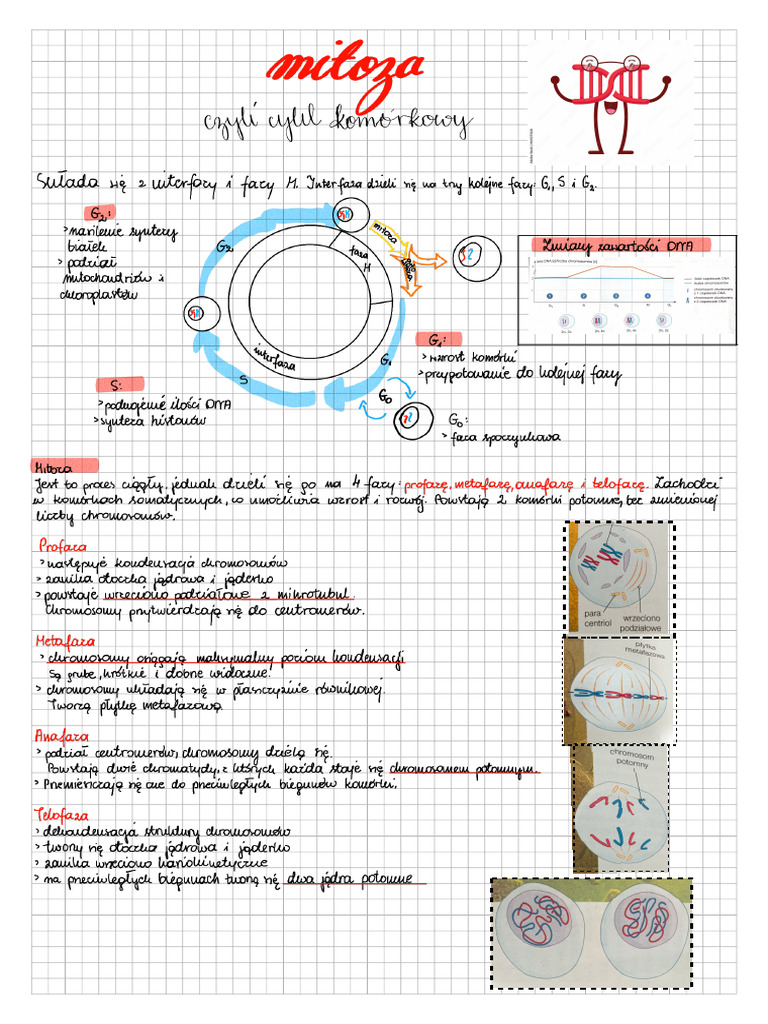 mitoza
czyli cykl komórkowy
Składa się z interfazy i fazy M. Interfaza dzieli się na trzy kolejne fazy: G₁, S i G₂.
G₂:
> nasilenie syntezy
białek
> podział
mitochondriów i
chloroplastów
G₂
faza
M
mitoza
interfaza
S
G₁
G₀
Zmiany zawartości DNA
G₁:
> wzrost komórki
> przygotowanie do kolejnej fazy
S:
> podwojenie ilości DNA
> synteza histonów
G₀:
> faza spoczynkowa
Mitoza
Jest to proces ciągły, jednak dzieli się go na 4 fazy: profazę, metafazę, anafazę i telofazę. Zachodzi
w komórkach somatycznych, co umożliwia wzrost i rozwój. Powstają 2 komórki potomne, bez zmienionej
liczby chromosomów.
Profaza
> następuje kondensacja chromosomów
> zanika otoczka jądrowa i jąderko
> powstaje wrzeciono podziałowe z mikrotubul.
Chromosomy przytwierdzają się do centromerów.
para
centriol
wrzeciono
podziałowe
Metafaza
> chromosomy osiągają maksymalny poziom kondensacji
Są grube, krótkie i dobrze widoczne.
> chromosomy układają się w płaszczyźnie równikowej.
Tworzą płytkę metafazową
płytka
metafazowa
Anafaza
> podział centromerów, chromosomy dzielą się.
Powstają dwie chromatydy, z których każda staje się chromosomem potomnym.
> Przemieszczają się one do przeciwległych biegunów komórki.
chromosom
potomny
Telofaza
> dekondensacja struktury chromosomów
> tworzy się otoczka jądrowa i jąderko
> zanika wrzeciono kariokinetyczne
> na przeciwległych biegunach tworzą się dwa jądra potomne